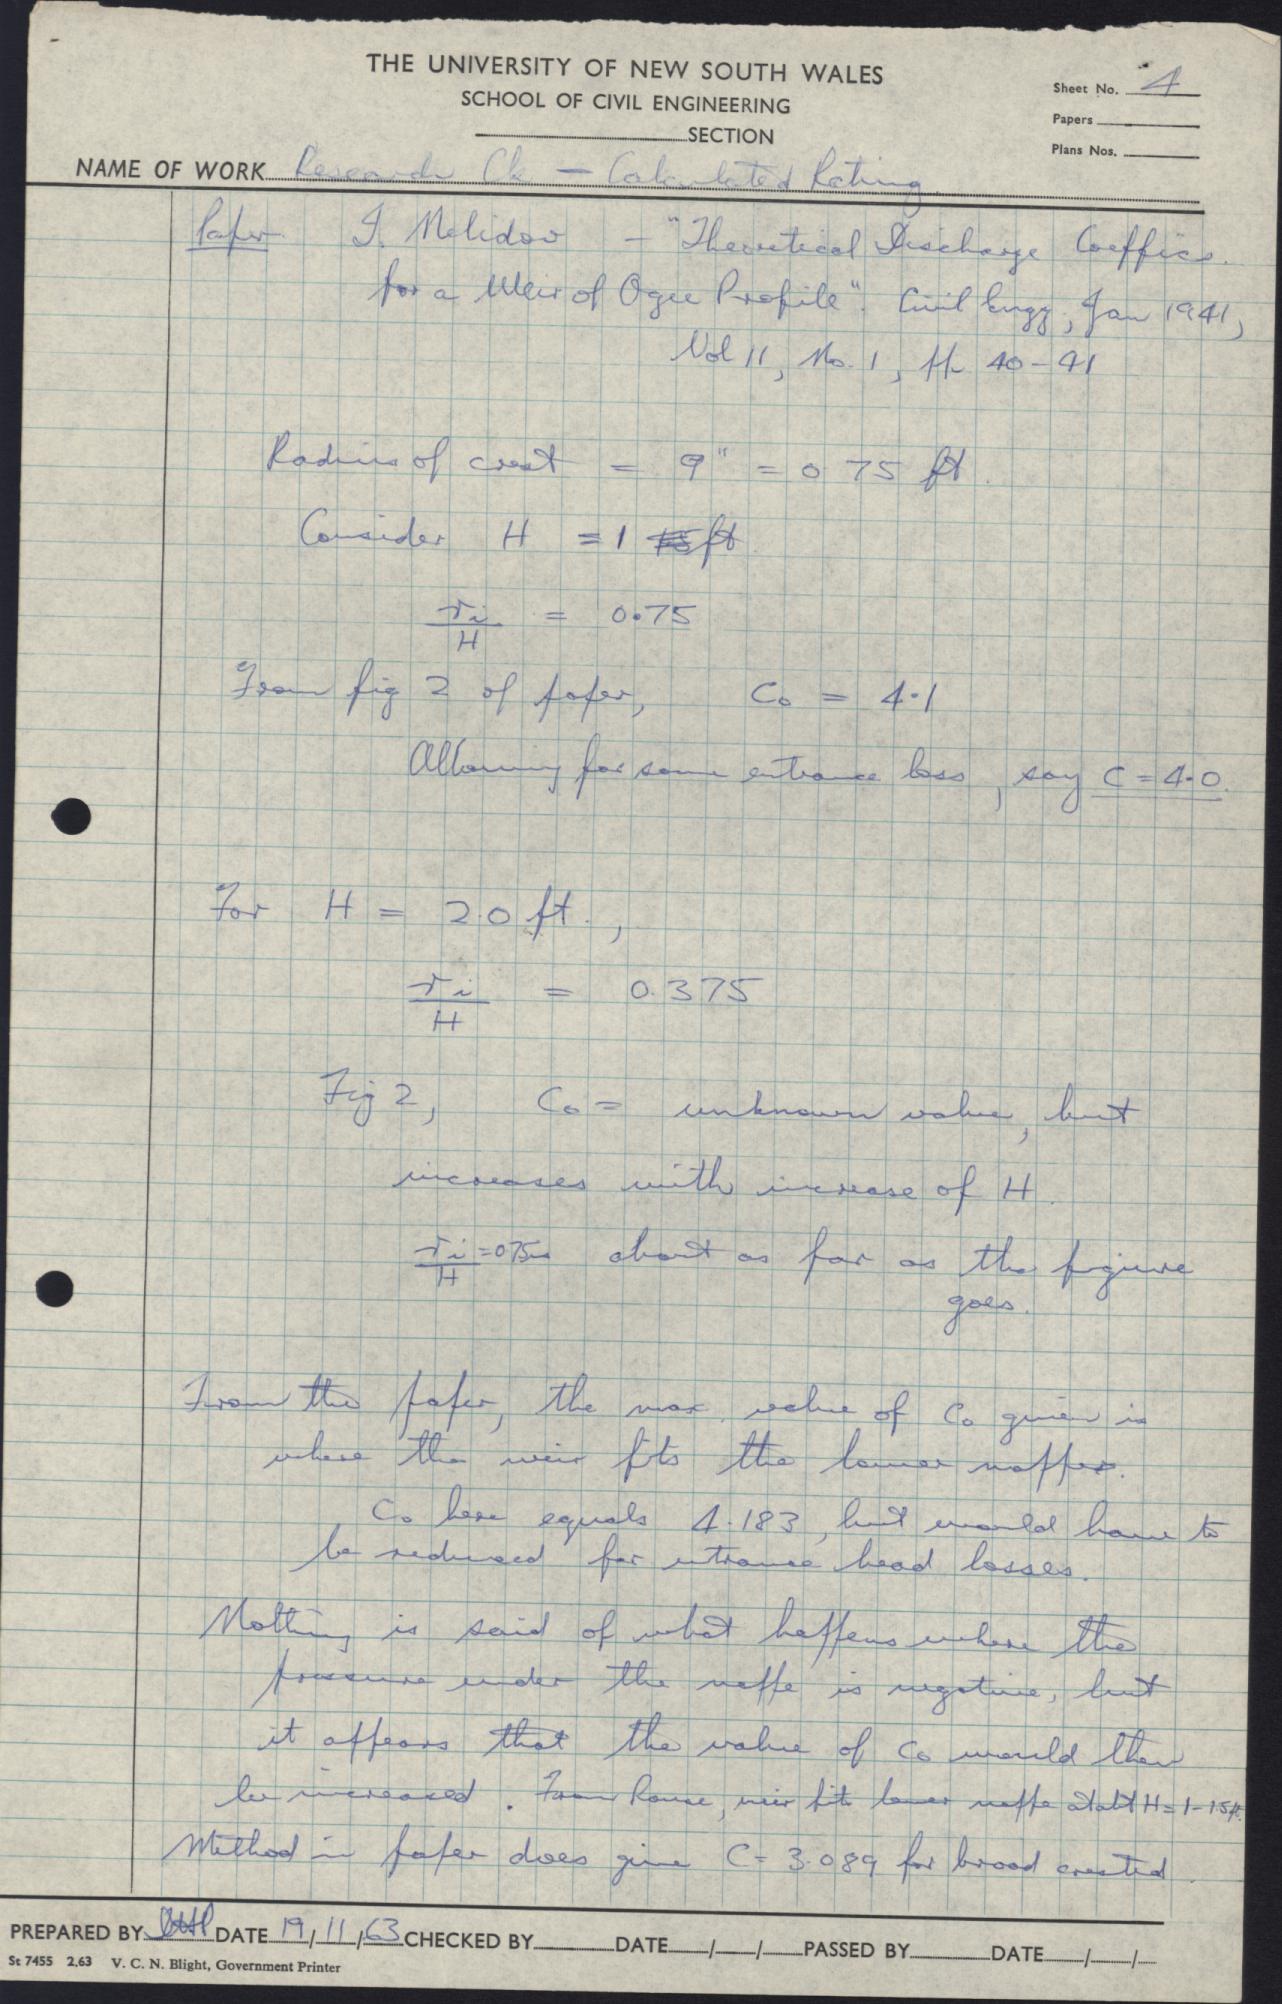 THE UNIVERSITY OF NEW SOUTH WALES
SCHOOL OF CIVIL ENGINEERING
SECTION
Sheet No. 4
Papers
Plans Nos.
NAME OF WORK Research Ck — Calculated Rating
Paper I. Nelidov - "Theoretical Discharge Coeffics.
for a Weir of Ogee Profile". Civil Engg, Jan 1941,
Vol 11, No. 1, pp 40-41
Radius of crest = 9" = 0.75 ft.
Consider H = 1 ft
ri/H = 0.75
From fig 2 of paper, Co = 4.1
Allowing for some entrance loss, say C = 4.0.
For H = 2.0 ft.,
ri/H = 0.375
Fig 2, Co = unknown value, but
increases with increase of H.
ri/H = 0.75 is about as far as the figure
goes.
From the paper, the max. value of Co given is
where the weir fits the lower nappe.
Co here equals 4.183, but would have to
be reduced for entrance head losses.
Nothing is said of what happens where the
pressure under the nappe is negative, but
it appears that the value of Co would then
be increased. From Rouse, weir fits lower nappe at abt H = 1-1.5 ft.
Method in paper does give C = 3.089 for broad crested
PREPARED BY DATE 19/11/63 CHECKED BY DATE / / PASSED BY DATE / /
St 7455 2.63 V. C. N. Blight, Government Printer